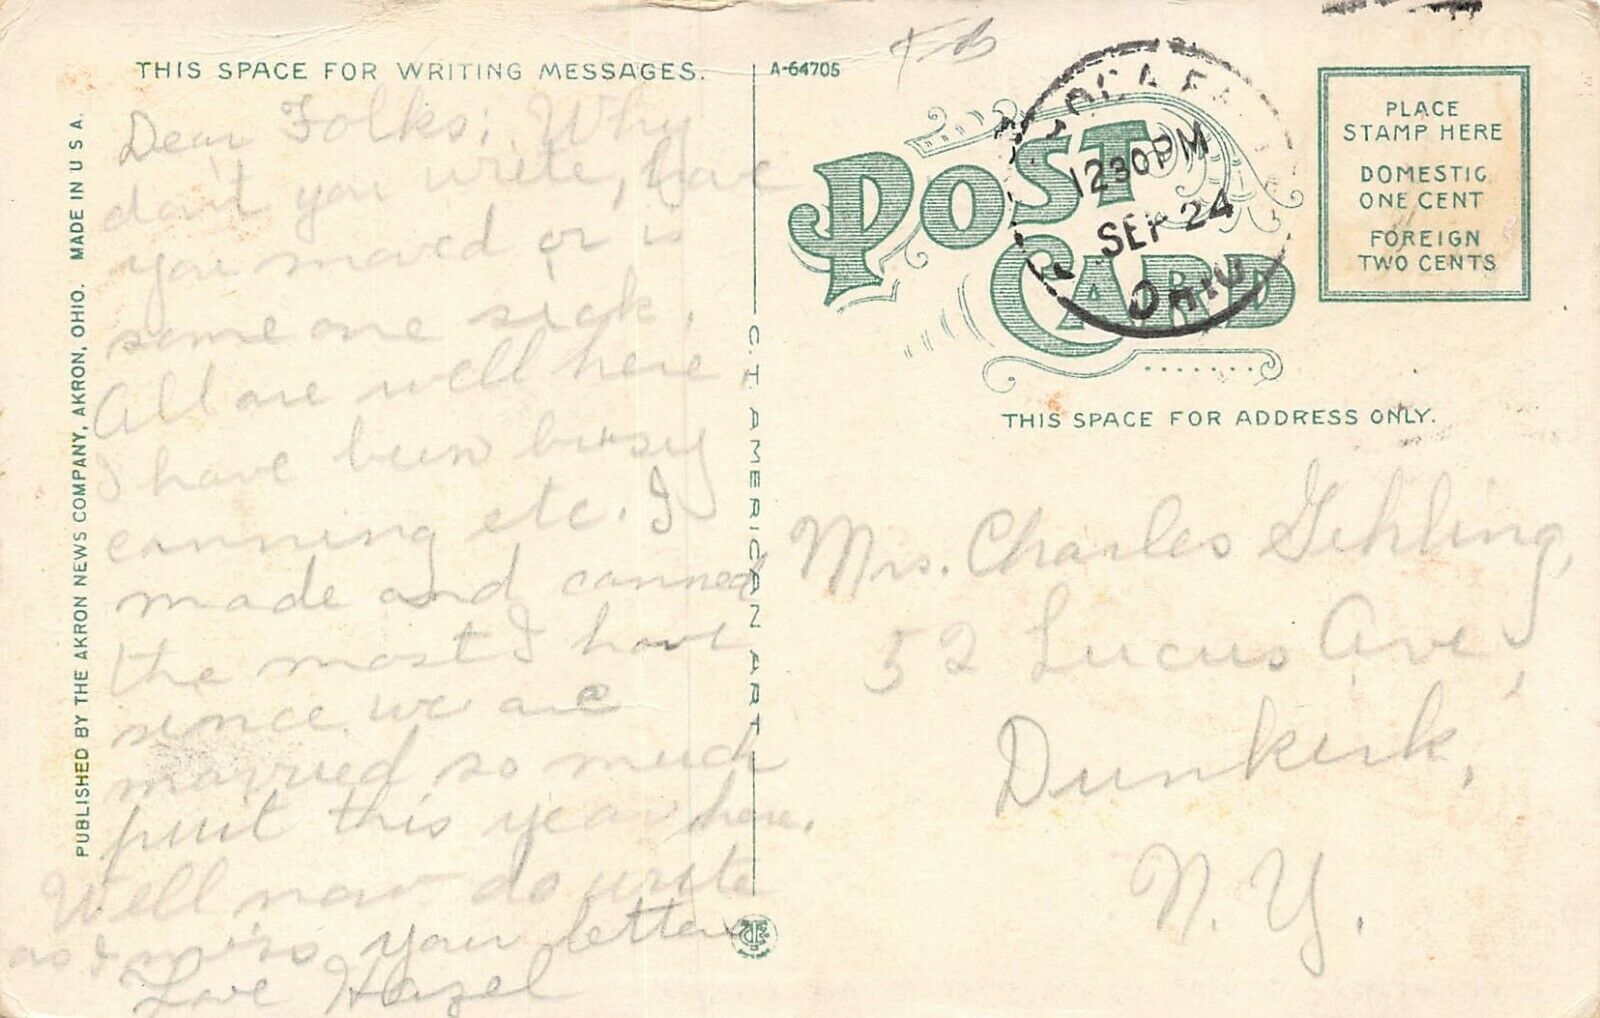 THIS SPACE FOR WRITING MESSAGES.
Dear Folks; Why
don't you write, have
you moved or is
some one sick.
All are well here,
I have been buisy
canning etc. I
made and canned
the most I have
since we are
married so much
fruit this year here.
Well now do write
as I miss your letters
Love Hazel
PUBLISHED BY THE AKRON NEWS COMPANY, AKRON, OHIO. MADE IN U S A.
C. T. AMERICAN ART
A-64705
POST CARD
1230PM
SEP 24
OHIO
PLACE
STAMP HERE
DOMESTIC
ONE CENT
FOREIGN
TWO CENTS
THIS SPACE FOR ADDRESS ONLY.
Mrs. Charles Gehling,
52 Lucus Ave,
Dunkirk,
N. Y.